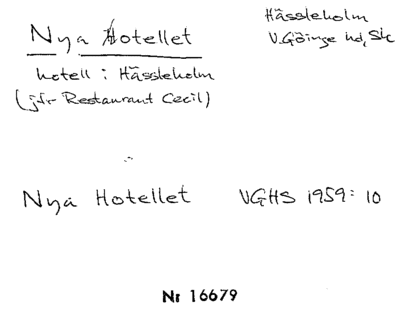 Nya Hotellet
Hässleholm
V.Göinge hd, Sk
hotell i Hässleholm
(jfr Restaurant Cecil)
Nya Hotellet VGHS 1959: 10
Nr 16679